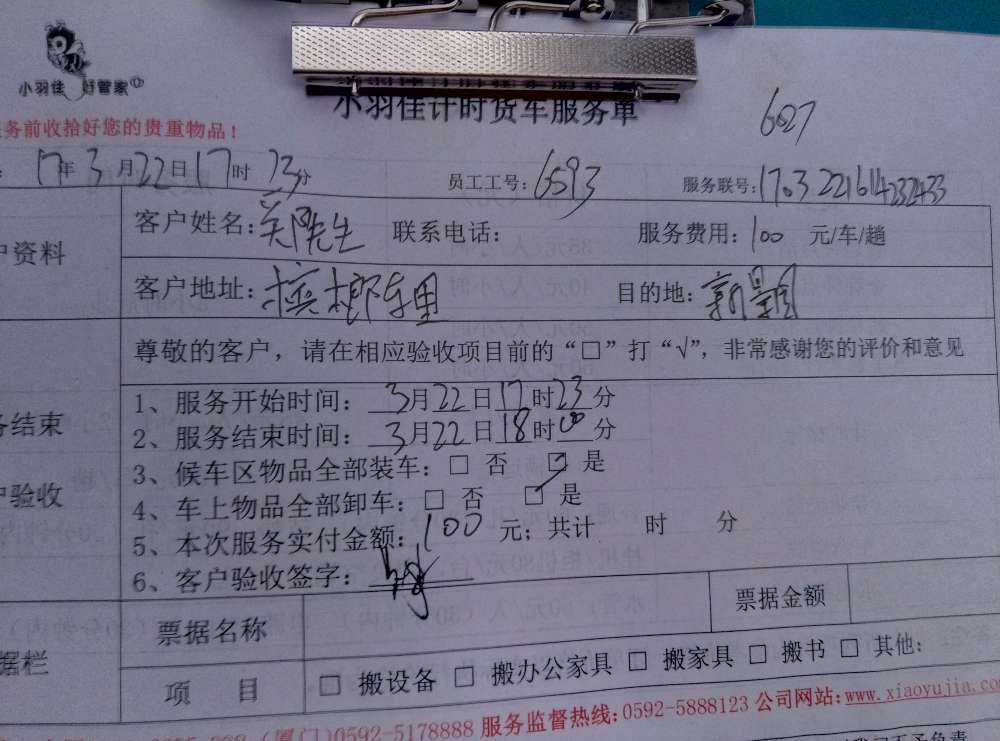 小羽佳 好管家
小羽佳计时货车服务单
6027
务前收拾好您的贵重物品！
17年3月22日17时23分 员工工号：6593 服务联号：1703221614232433
户资料
客户姓名：关先生 联系电话： 服务费用：100 元/车/趟
客户地址：槟榔东里 目的地：新景园
尊敬的客户，请在相应验收项目前的“□”打“√”，非常感谢您的评价和意见
务结束
户验收
1、服务开始时间：3月22日17时23分
2、服务结束时间：3月22日18时00分
3、候车区物品全部装车：□ 否 ☑ 是
4、车上物品全部卸车：□ 否 ☑ 是
5、本次服务实付金额：100 元；共计 时 分
6、客户验收签字：
据栏
票据名称 票据金额
项 目 □ 搬设备 □ 搬办公家具 □ 搬家具 □ 搬书 □ 其他：
（厦门）0592-5178888 服务监督热线：0592-5888123 公司网站：www.xiaoyujia.co